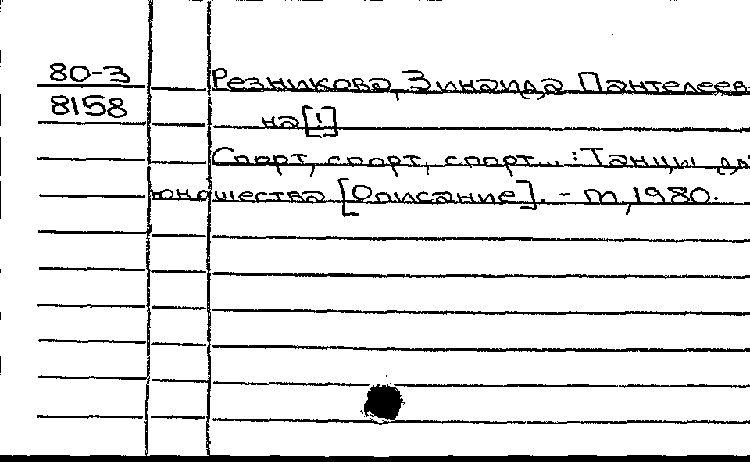 80-3 Резникова, Зинаида Пантелеев
8158 на [!]
Спорт, спорт, спорт... : Танцы дл
юношества [Описание]. - М, 1980.